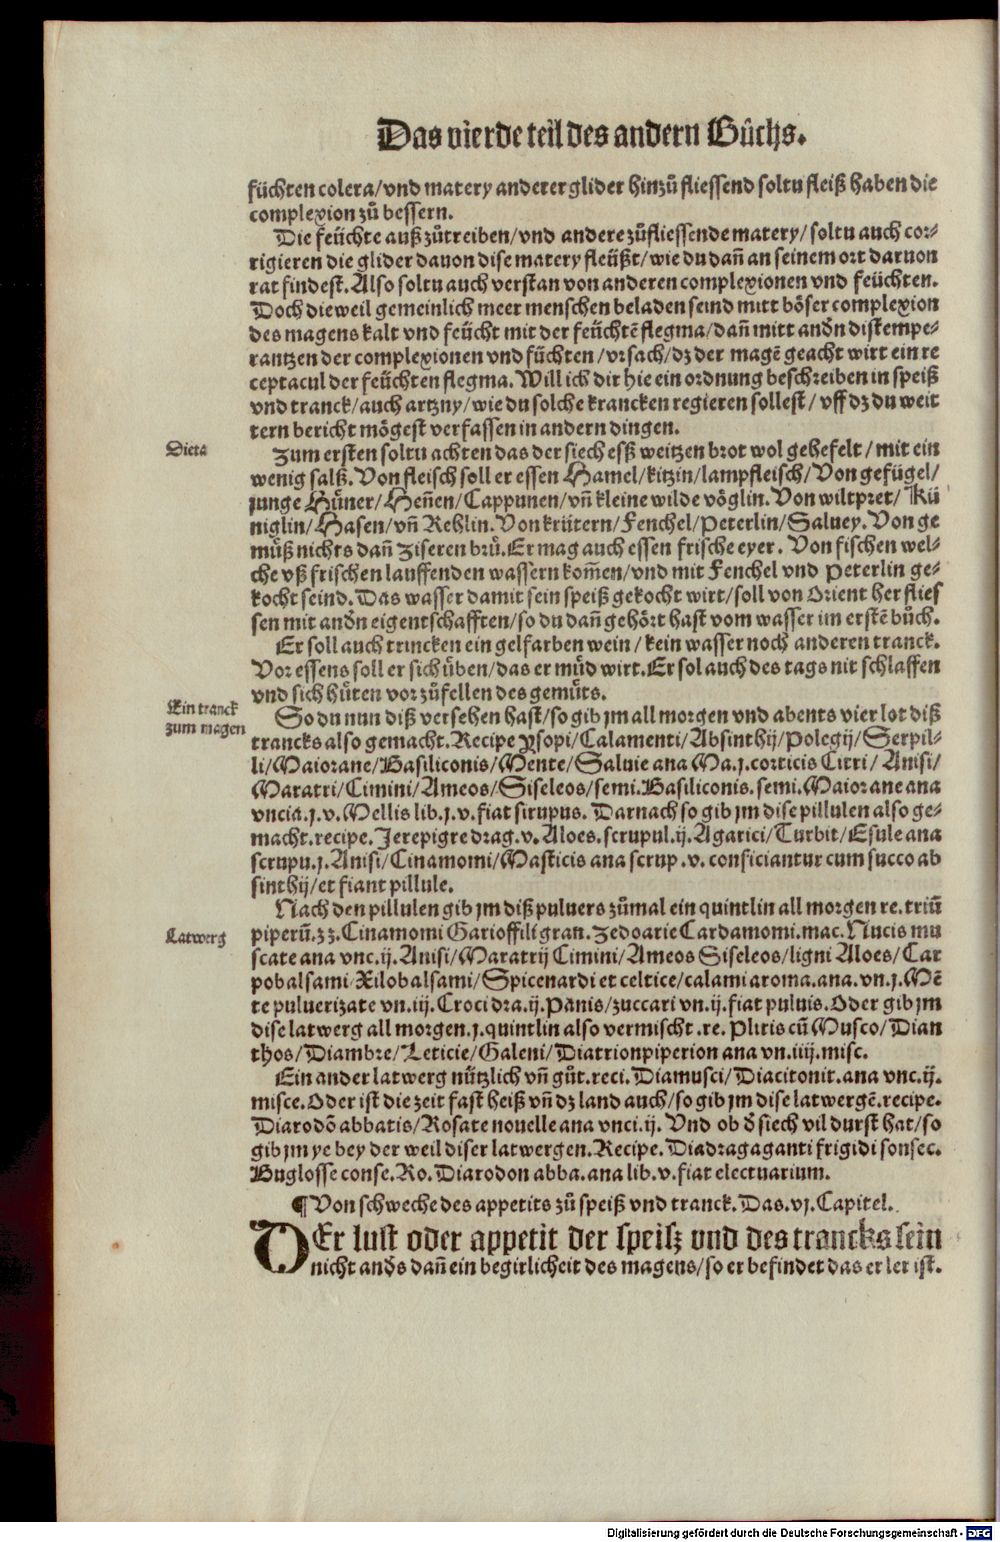 Das vierde teil des andern Bůchs.
füchten colera/vnd matery anderer glider hinzů fliessend soltu fleiß haben die
complexion zů bessern.
Die feüchte auß zůtreiben/vnd andere zůfliessende matery/soltu auch cor-
rigieren die glider dauon dise matery fleüßt/wie du dañ an seinem ort daruon
rat findest. Also soltu auch verstan von anderen complexionen vnd feüchten.
Doch dieweil gemeinlich meer menschen beladen seind mitt böser complexion
des magens kalt vnd feücht mit der feüchtē flegma/dañ mitt andn̄ distempe-
rantzen der complexionen vnd füchten/vrsach/dz der magē geacht wirt ein re
ceptacul der feüchten flegma. Will ich dir hie ein ordnung beschreiben in speiß
vnd tranck/auch artzny/wie du solche krancken regieren sollest/vff dz du weit
tern bericht mögest verfassen in andern dingen.
Dieta
Zum ersten soltu achten das der siech esß weitzen brot wol gehefelt/mit ein
wenig saltz. Von fleisch soll er essen Hamel/kitzin/lampfleisch/Von gefügel/
junge Hüner/Heñen/Cappunen/vñ kleine wilde vöglin. Von wiltpret/Kü
niglin/Hasen/vñ Rehlin. Von krütern/Fenchel/Peterlin/Saluey. Von ge
müß nichts dañ Ziseren brü. Er mag auch essen frische eyer. Von fischen wel-
che vß frischen lauffenden wassern kom̄en/vnd mit Fenchel vnd Peterlin ge-
kocht seind. Das wasser damit sein speiß gekocht wirt/soll von Orient her flies
sen mit andn̄ eigentschafften/so du dañ gehört hast vom wasser im erstē bůch.
Er soll auch trincken ein gelfarben wein/kein wasser noch anderen tranck.
Vor essens soll er sich üben/das er müd wirt. Er sol auch des tags nit schlaffen
vnd sich hüten vor zůfellen des gemüts.
Ein tranck
zum magen
So du nun diß versehen hast/so gib jm all morgen vnd abents vier lot diß
trancks also gemacht. Recipe ysopi/Calamenti/Absinthij/Polegij/Serpil-
li/Maiorane/Basiliconis/Mente/Saluie ana Ma.j.corticis Citri/Anisi/
Maratri/Cimini/Ameos/Siseleos/semi.Basiliconis.semi.Maiorane ana
vncia.j.v.Mellis lib.j.v.fiat sirupus. Darnach so gib jm dise pillulen also ge-
macht.recipe. Jerepigre drag.v.Aloes.scrupul.ij.Agarici/Turbit/Esule ana
scrupu.j.Anisi/Cinamomi/Masticis ana scrup.v.conficiantur cum succo ab
sinthij/et fiant pillule.
Nach den pillulen gib jm diß puluers zůmal ein quintlin all morgen re.triū
Latwerg
piperū.zz.Cinamomi Garioffili gran.Zedoarie Cardamomi.mac.Nucis mu
scate ana vnc.ij.Anisi/Maratrij Cimini/Ameos Siseleos/ligni Aloes/Car
pobalsami/Xilobalsami/Spicenardi et celtice/calami aroma.ana.vn.j.Mē
te puluerizate vn.iij.Croci dra.ij.Panis/zuccari vn.ij.fiat puluis. Oder gib jm
dise latwerg all morgen.j.quintlin also vermischt.re.Pliris cū Musco/Dian
thos/Diambre/Leticie/Galeni/Diatrionpiperion ana vn.iiij.misc.
Ein ander latwerg nützlich vñ gůt.reci.Diamusci/Diacitonit.ana vnc.ij.
misce.Oder ist die zeit fast heiß vñ dz land auch/so gib jm dise latwergē.recipe.
Diarodō abbatis/Rosate nouelle ana vnci.ij. Vnd ob d̄ siech vil durst hat/so
gib jm ye bey der weil diser latwergen. Recipe. Diadragaganti frigidi sonsec.
Buglosse conse.Ro.Diarodon abba.ana lib.v.fiat electuarium.
¶Von schweche des appetits zů speiß vnd tranck. Das.vj.Capitel.
DEr lust oder appetit der speisz vnd des trancks sein
nicht and̄s dañ ein begirlicheit des magens/so er befindet das er ler ist.
Digitalisierung gefördert durch die Deutsche Forschungsgemeinschaft - DFG